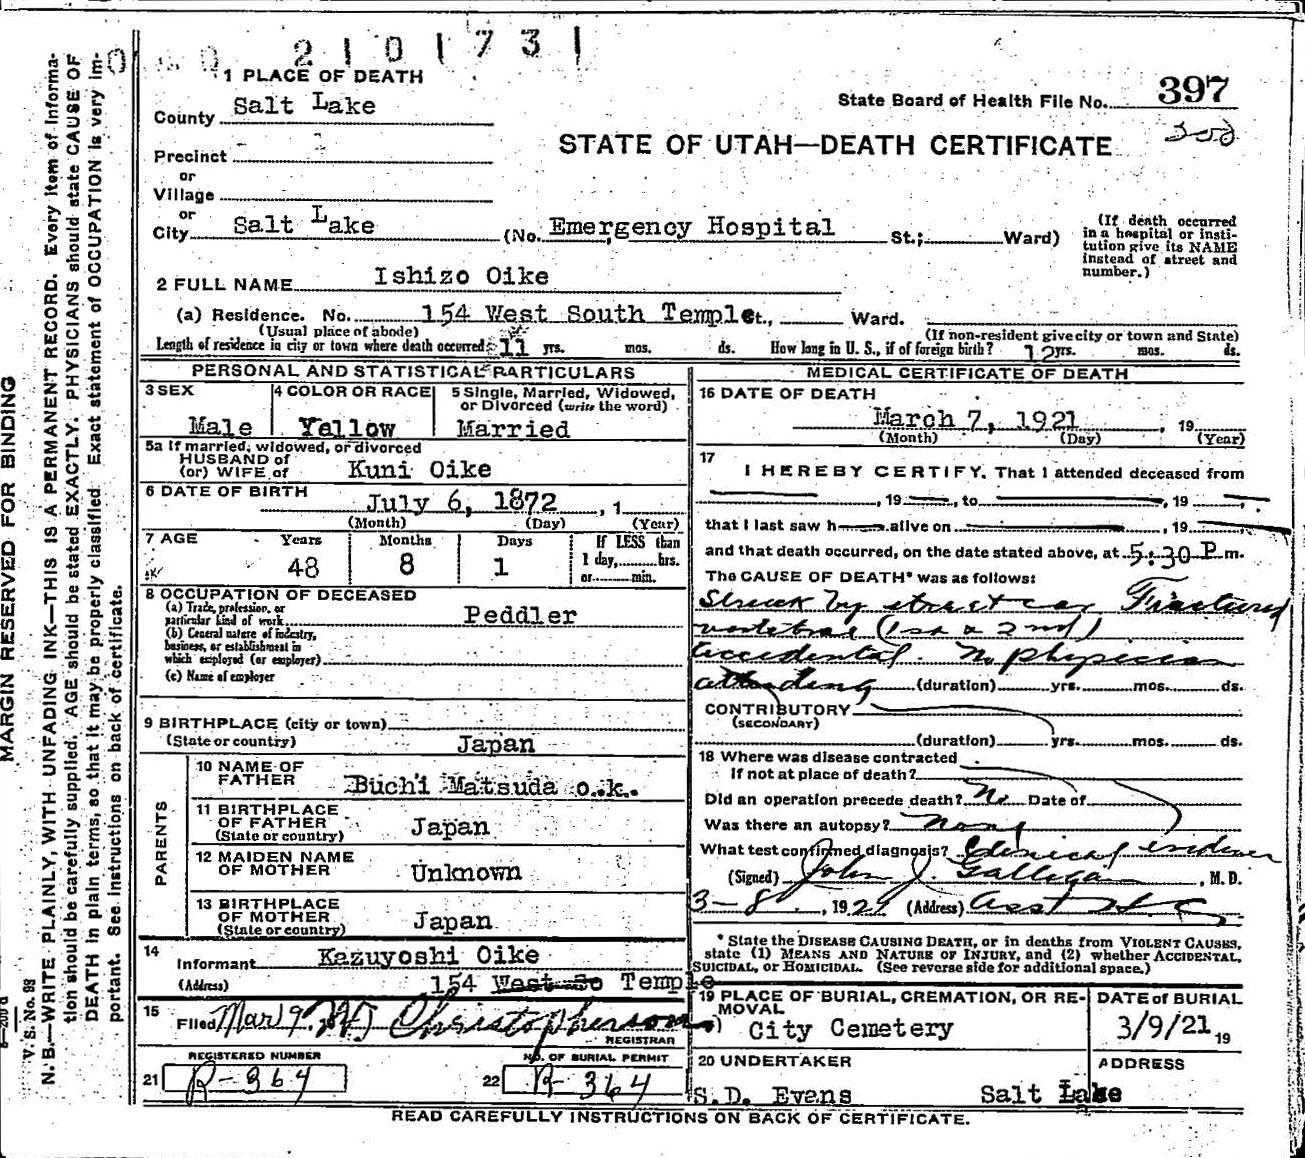 2101731
1 PLACE OF DEATH
County Salt Lake
State Board of Health File No. 397
Precinct
or
Village
or
STATE OF UTAH—DEATH CERTIFICATE
City Salt Lake (No. Emergency Hospital St.; Ward)
(If death occurred in a hospital or insti-
tution give its NAME
instead of street and
number.)
2 FULL NAME Ishizo Oike
(a) Residence. No. 154 West South Temple t., Ward.
(Usual place of abode) (If non-resident give city or town and State)
Length of residence in city or town where death occurred 11 yrs. mos. ds. How long in U. S., if of foreign birth? 12 yrs. mos. ds.
PERSONAL AND STATISTICAL PARTICULARS
3 SEX
Male
4 COLOR OR RACE
Yellow
5 Single, Married, Widowed,
or Divorced (write the word)
Married
5a If married, widowed, or divorced
HUSBAND of
(or) WIFE of Kuni Oike
6 DATE OF BIRTH July 6, 1872, 1
(Month) (Day) (Year)
7 AGE Years Months Days If LESS than
1 day, hrs.
or min.
48 8 1
8 OCCUPATION OF DECEASED
(a) Trade, profession, or
particular kind of work Peddler
(b) General nature of industry,
business, or establishment in
which employed (or employer)
(c) Name of employer
9 BIRTHPLACE (city or town)
(State or country) Japan
PARENTS
10 NAME OF
FATHER Buchi Matsuda o.k.
11 BIRTHPLACE
OF FATHER
(State or country) Japan
12 MAIDEN NAME
OF MOTHER Unknown
13 BIRTHPLACE
OF MOTHER
(State or country) Japan
14
Informant Kazuyoshi Oike
(Address) 154 West So Temple
15
Filed Mar 9 Christopherson
REGISTRAR
REGISTERED NUMBER
21 R-364
NO. OF BURIAL PERMIT
22 R-364
MEDICAL CERTIFICATE OF DEATH
16 DATE OF DEATH
March 7, 1921, 19
(Month) (Day) (Year)
17
I HEREBY CERTIFY, That I attended deceased from
, 19 , to , 19 ,
that I last saw h alive on , 19
and that death occurred, on the date stated above, at 5:30 P m.
The CAUSE OF DEATH* was as follows:
Struck by street car Fractured
vertebrae (1st & 2nd)
Accidental. No physician
attending (duration) yrs. mos. ds.
CONTRIBUTORY
(SECONDARY)
(duration) yrs. mos. ds.
18 Where was disease contracted
If not at place of death?
Did an operation precede death? No Date of
Was there an autopsy? None
What test confirmed diagnosis? Clinical evidence
(Signed) John J. Galligan, M. D.
3-8, 1921 (Address) Asst H.C.
* State the DISEASE CAUSING DEATH, or in deaths from VIOLENT CAUSES,
state (1) MEANS AND NATURE OF INJURY, and (2) whether ACCIDENTAL,
SUICIDAL, or HOMICIDAL. (See reverse side for additional space.)
19 PLACE OF BURIAL, CREMATION, OR RE-
MOVAL
City Cemetery
DATE of BURIAL
3/9/21 19
20 UNDERTAKER
S.D. Evans
ADDRESS
Salt Lake
READ CAREFULLY INSTRUCTIONS ON BACK OF CERTIFICATE.
MARGIN RESERVED FOR BINDING
V. S. No. 98
N. B.—WRITE PLAINLY, WITH UNFADING INK—THIS IS A PERMANENT RECORD. Every item of informa-
tion should be carefully supplied. AGE should be stated EXACTLY. PHYSICIANS should state CAUSE OF
DEATH in plain terms, so that it may be properly classified. Exact statement of OCCUPATION is very im-
portant. See instructions on back of certificate.